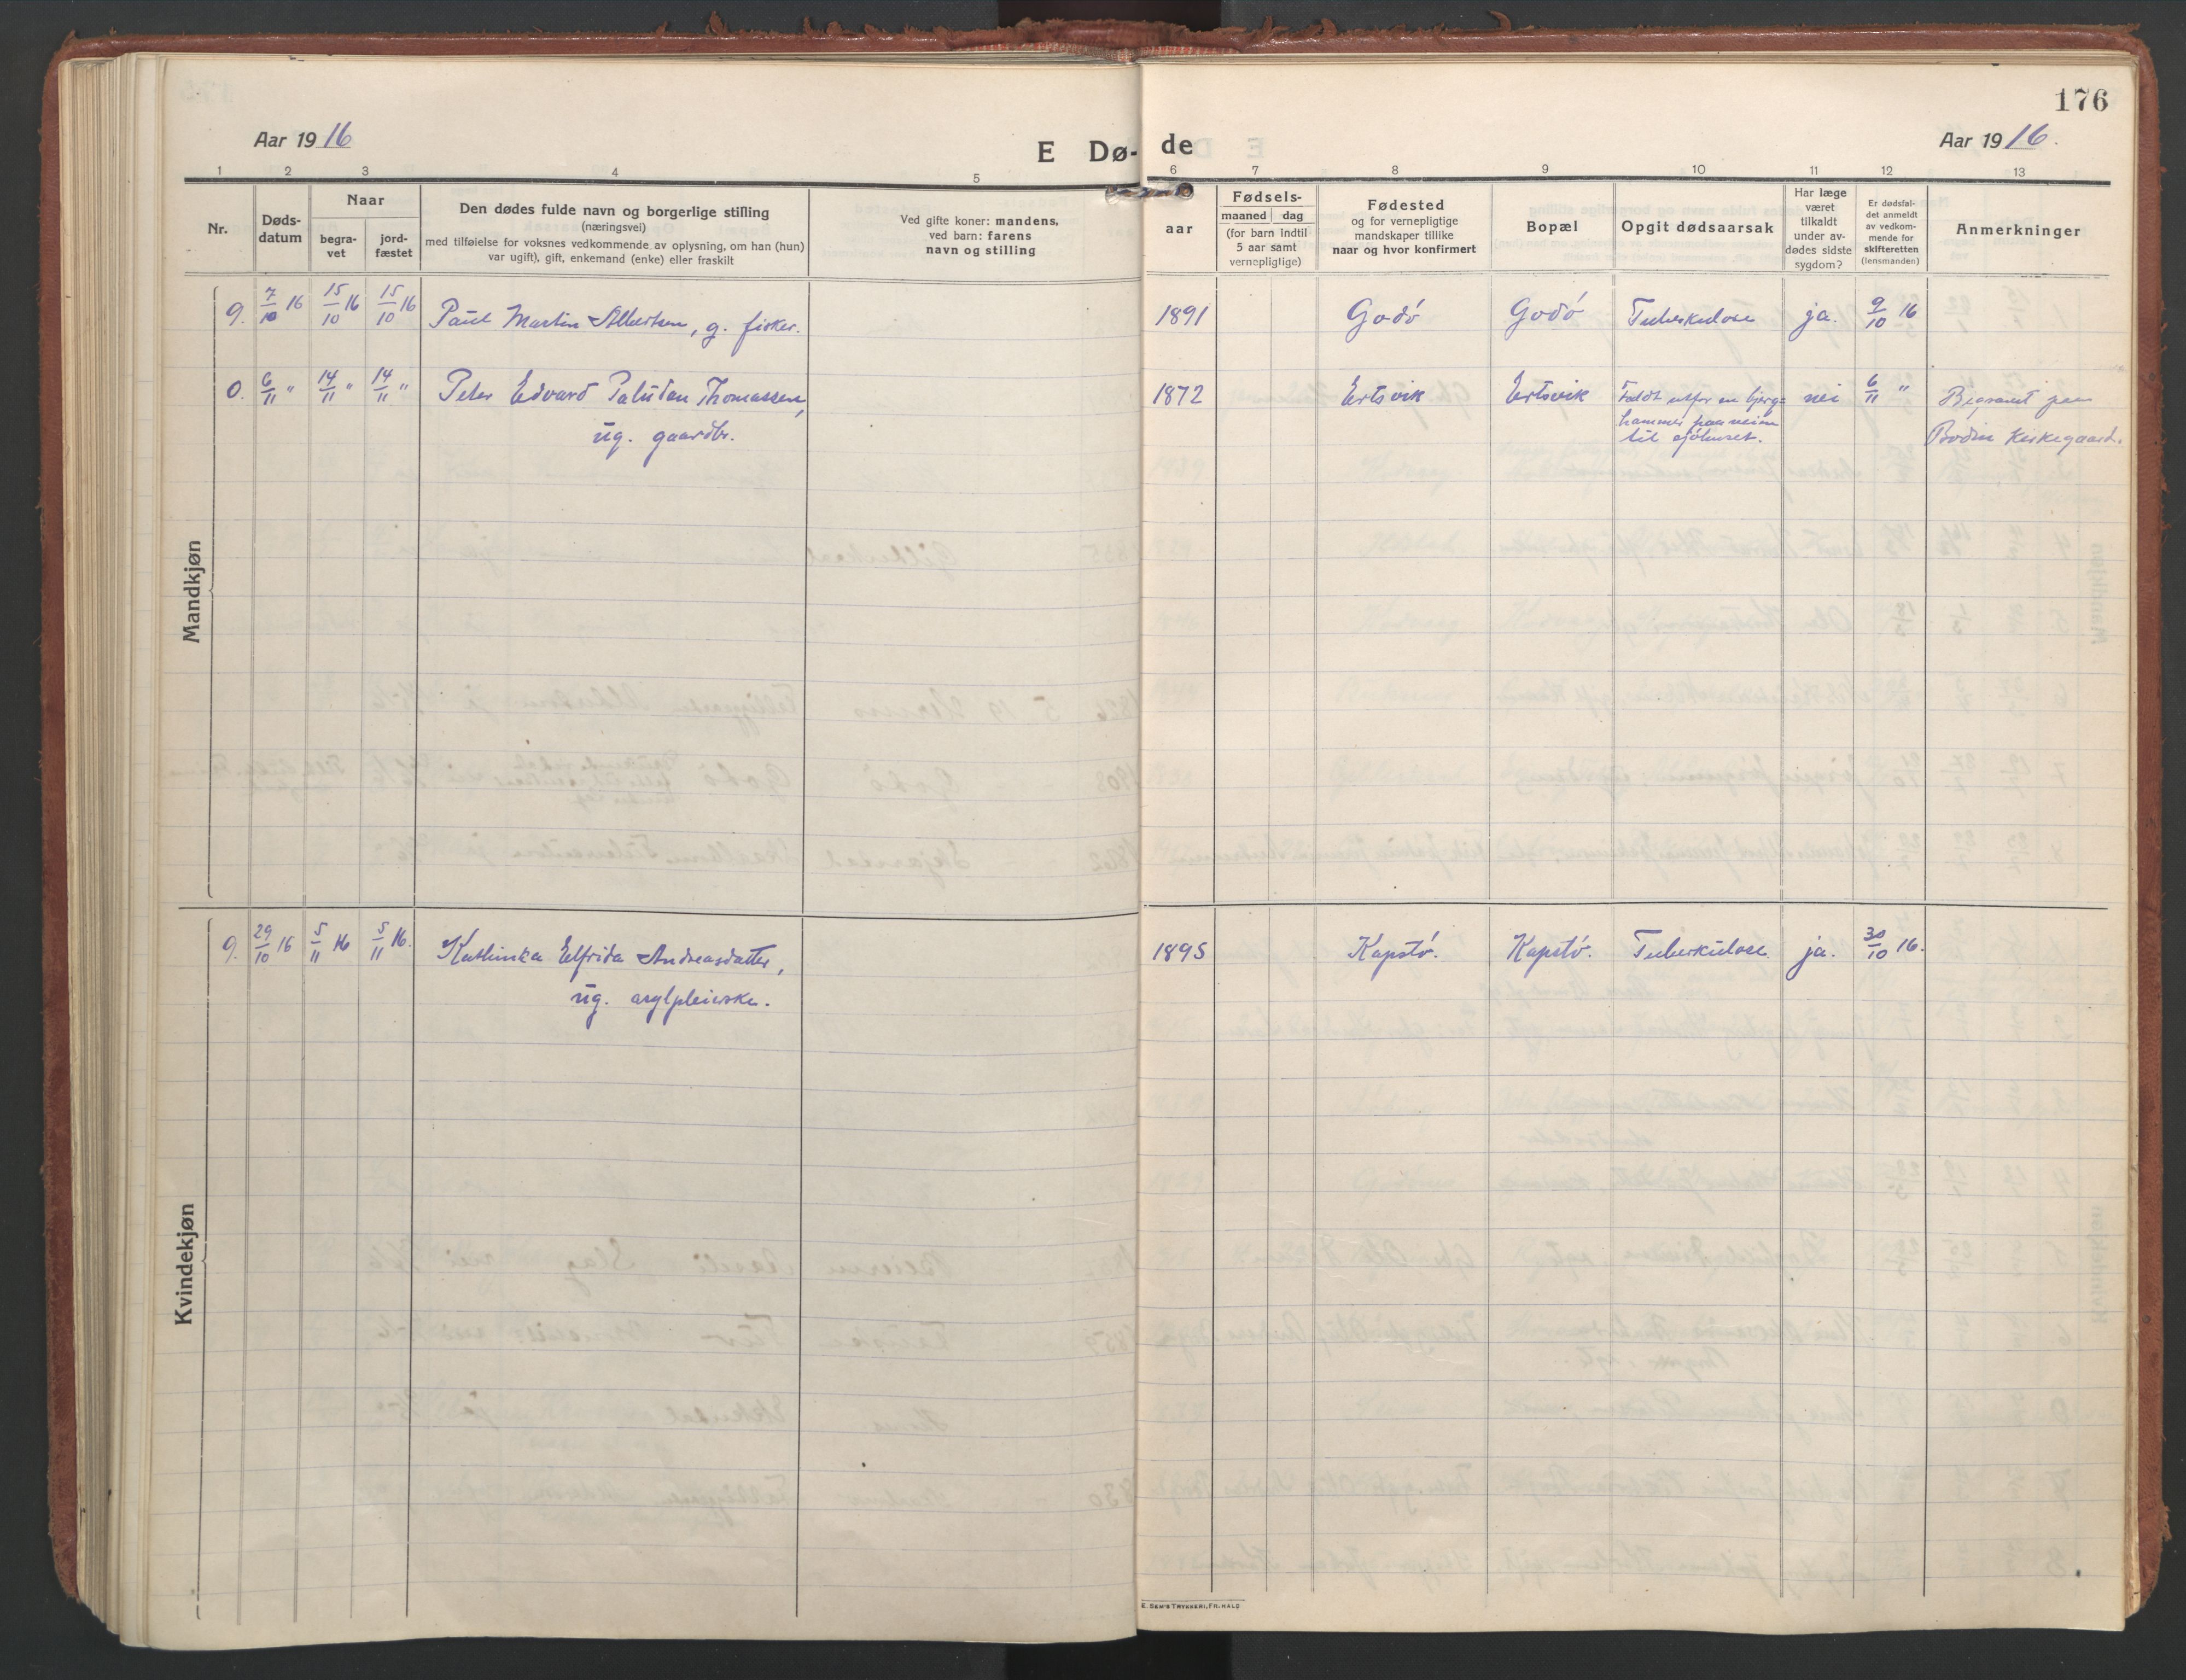 176
Aar 1916
E Dø-
de
Aar 1916.
1 2 3 4 5 6 7 8 9 10 11 12 13
Nr.
Døds-
datum
Naar
begra-
vet
jord-
fæstet
Den dødes fulde navn og borgerlige stilling
(næringsvei)
med tilføielse for voksnes vedkommende av oplysning, om han (hun)
var ugift), gift, enkemand (enke) eller fraskilt
Ved gifte koner: mandens,
ved barn: farens
navn og stilling
aar
Fødsels-
maaned dag
(for barn indtil
5 aar samt
vernepligtige)
Fødested
og for vernepligtige
mandskaper tillike
naar og hvor konfirmert
Bopæl
Opgit dødsaarsak
Har læge
været
tilkaldt
under av-
dødes sidste
sygdom?
Er dødsfal-
det anmeldt
av vedkom-
mende for
skifteretten
(lensmanden)
Anmerkninger
Mandkjøn
9. 7/10 16 15/10 16 15/10 16 Paul Martin Albertsen, g. fisker. 1891 Godö Godö Tuberkulose ja. 9/10 16
0. 6/11 " 14/11 " 14/11 " Peter Edvard Paludan Thomassen, 1872 Ertsvik Ertsvik Faldt utfor en bjerg= nei 6/11 " Begravet paa
ug. gaardbr. hammer paa veien Bodin Kirkegaard.
til sjöhuset.
Kvindekjøn
9. 29/10 16 5/11 16 5/11 16. Kathinka Elfrida Andreasdatter, 1895 Kapstö. Kapstö. Tuberkulose. ja. 30/10 16.
ug. asylpleierske.
E. SEM'S TRYKKERI, FR.HALD